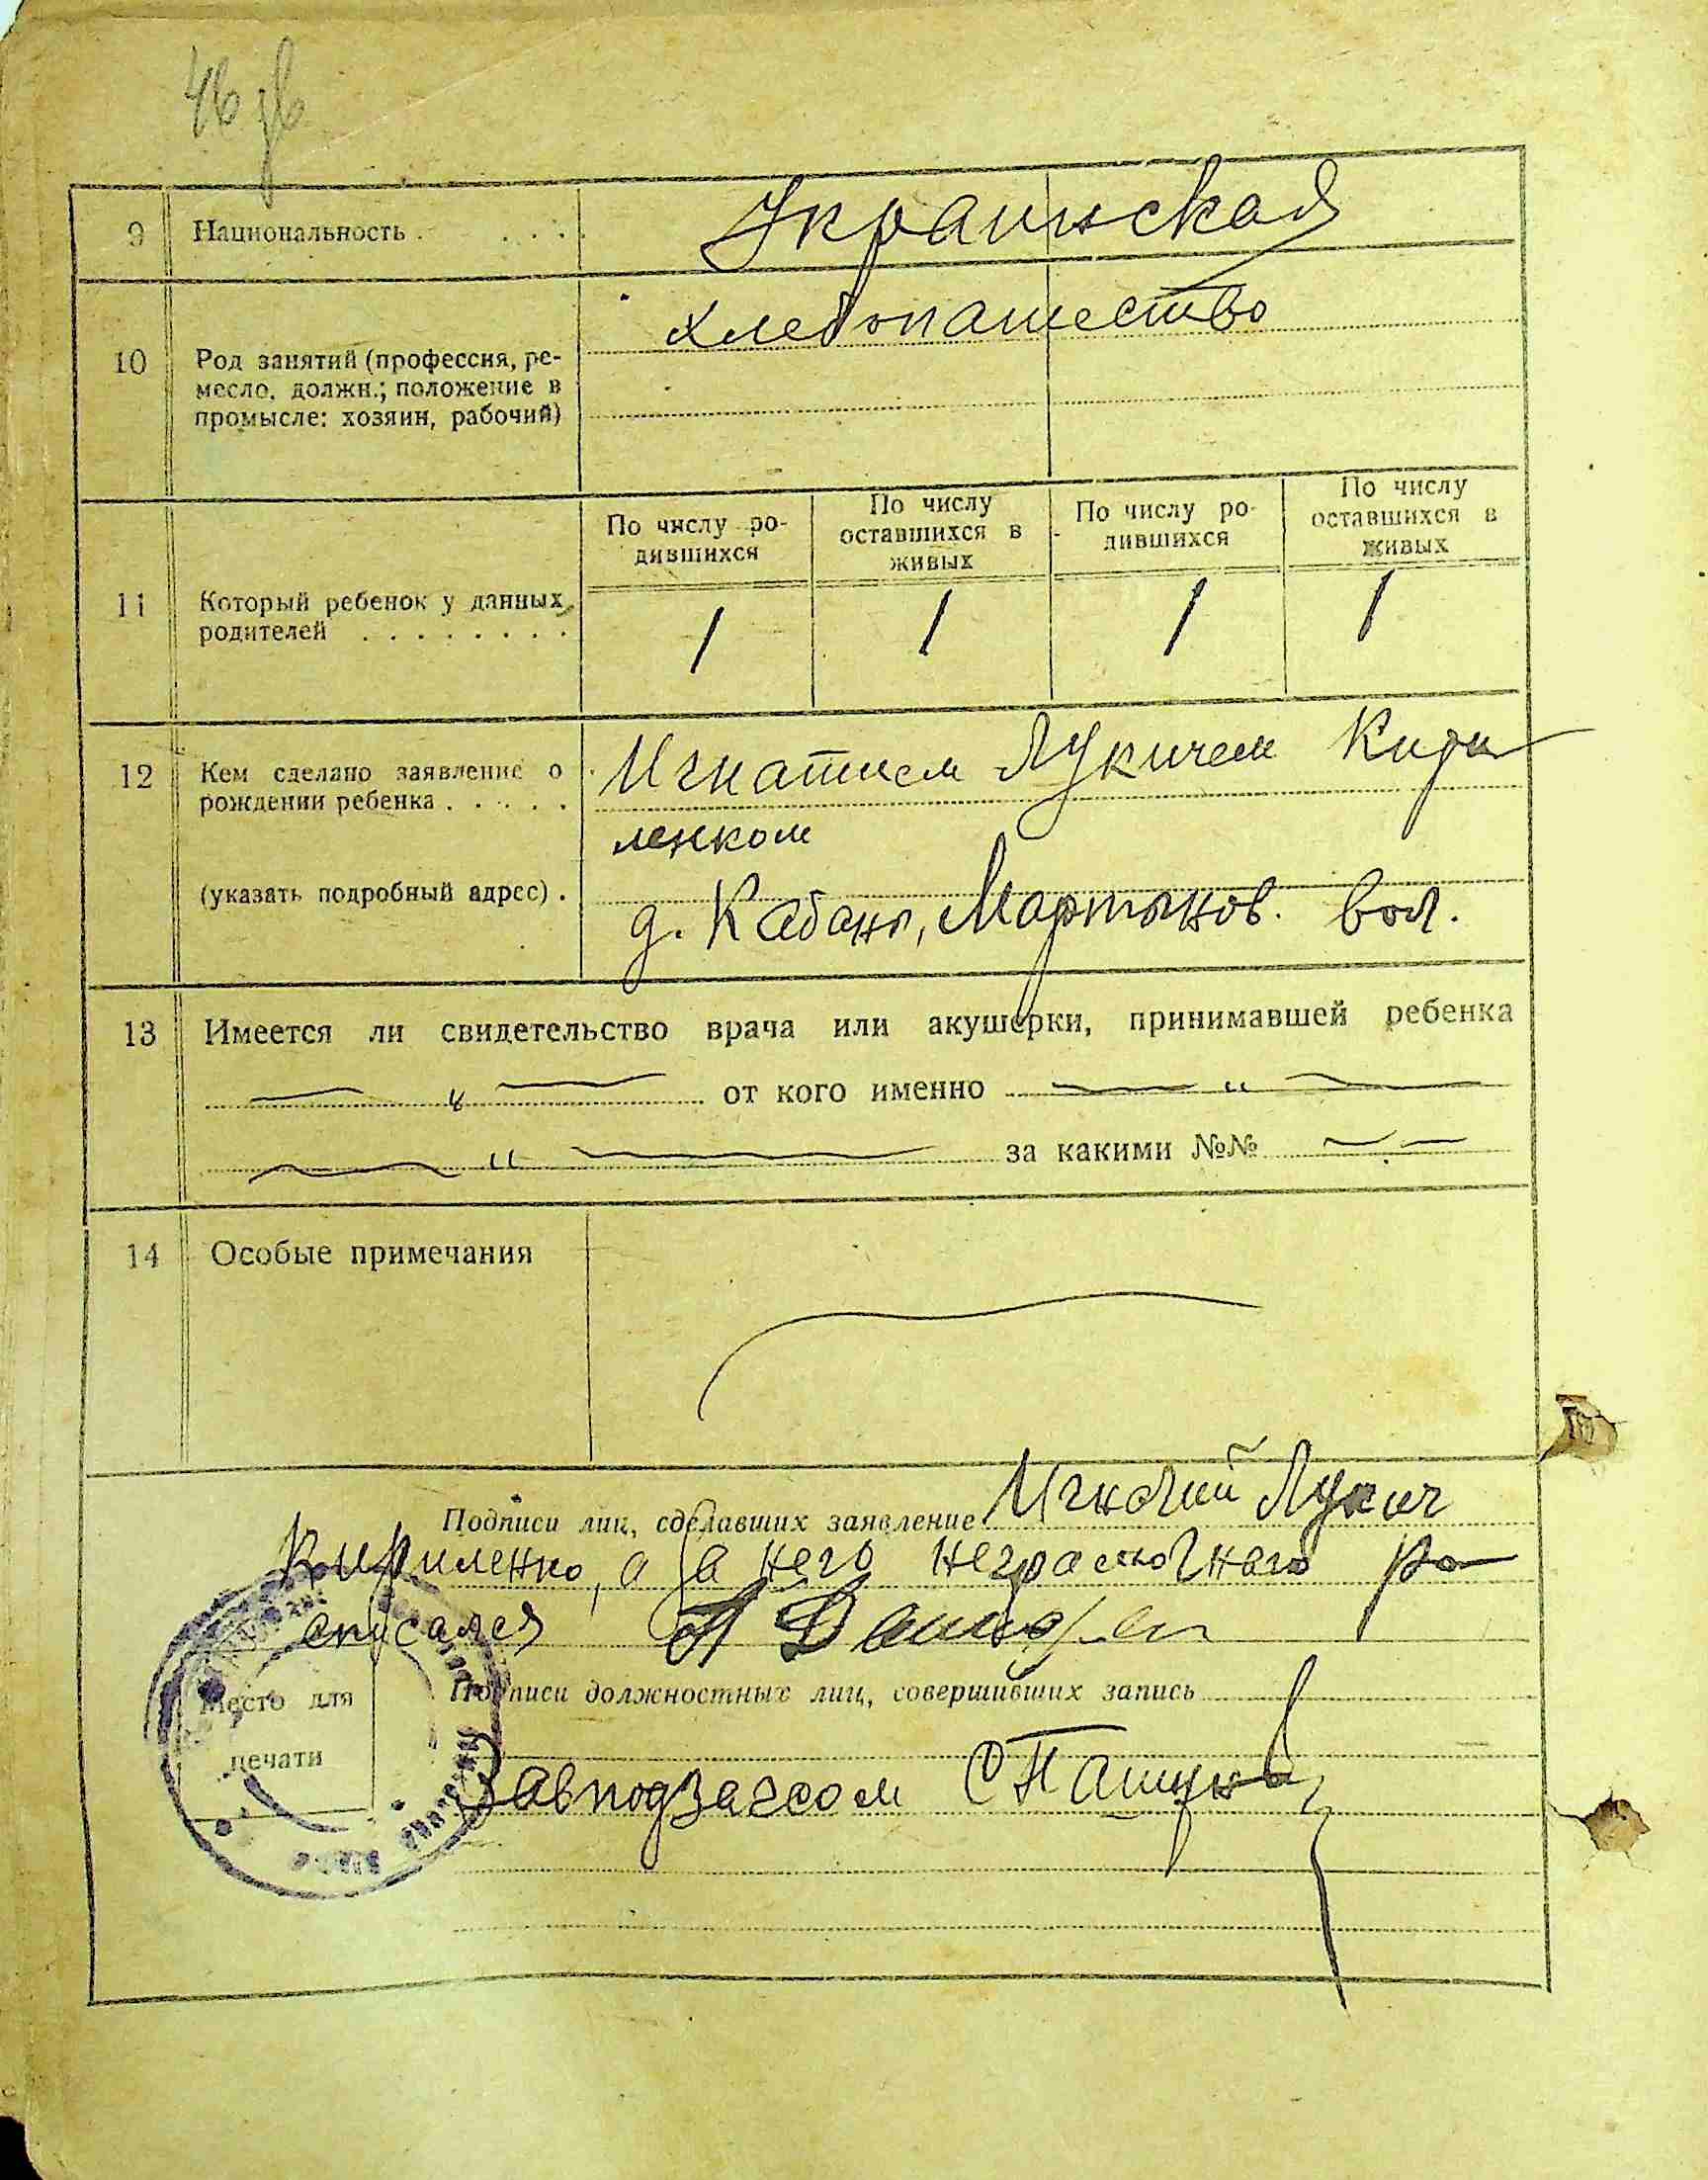 46
9 Национальность . . . . . Украинская
хлебопашество
10 Род занятий (профессия, ре-
месло, должн.; положение в
промысле: хозяин, рабочий)
По числу ро-
дившихся
По числу
оставшихся в
живых
По числу ро-
дившихся
По числу
оставшихся в
живых
11 Который ребенок у данных
родителей . . . . . . . .
1 1 1 1
12 Кем сделано заявление о
рождении ребенка . . . . .
Игнатием Лукичем Кири
ленком
(указать подробный адрес) .
д. Кабаны, Мартынов. вол.
13 Имеется ли свидетельство врача или акушерки, принимавшей ребенка
— " — от кого именно — " —
— " — за какими №№ — —
14 Особые примечания
Подписи лиц, сделавших заявление Игнатий Лукич
Кириленко, а за него неграмотного ра
списался
Место для
печати
Подписи должностных лиц, совершивших запись
Завподзагсом